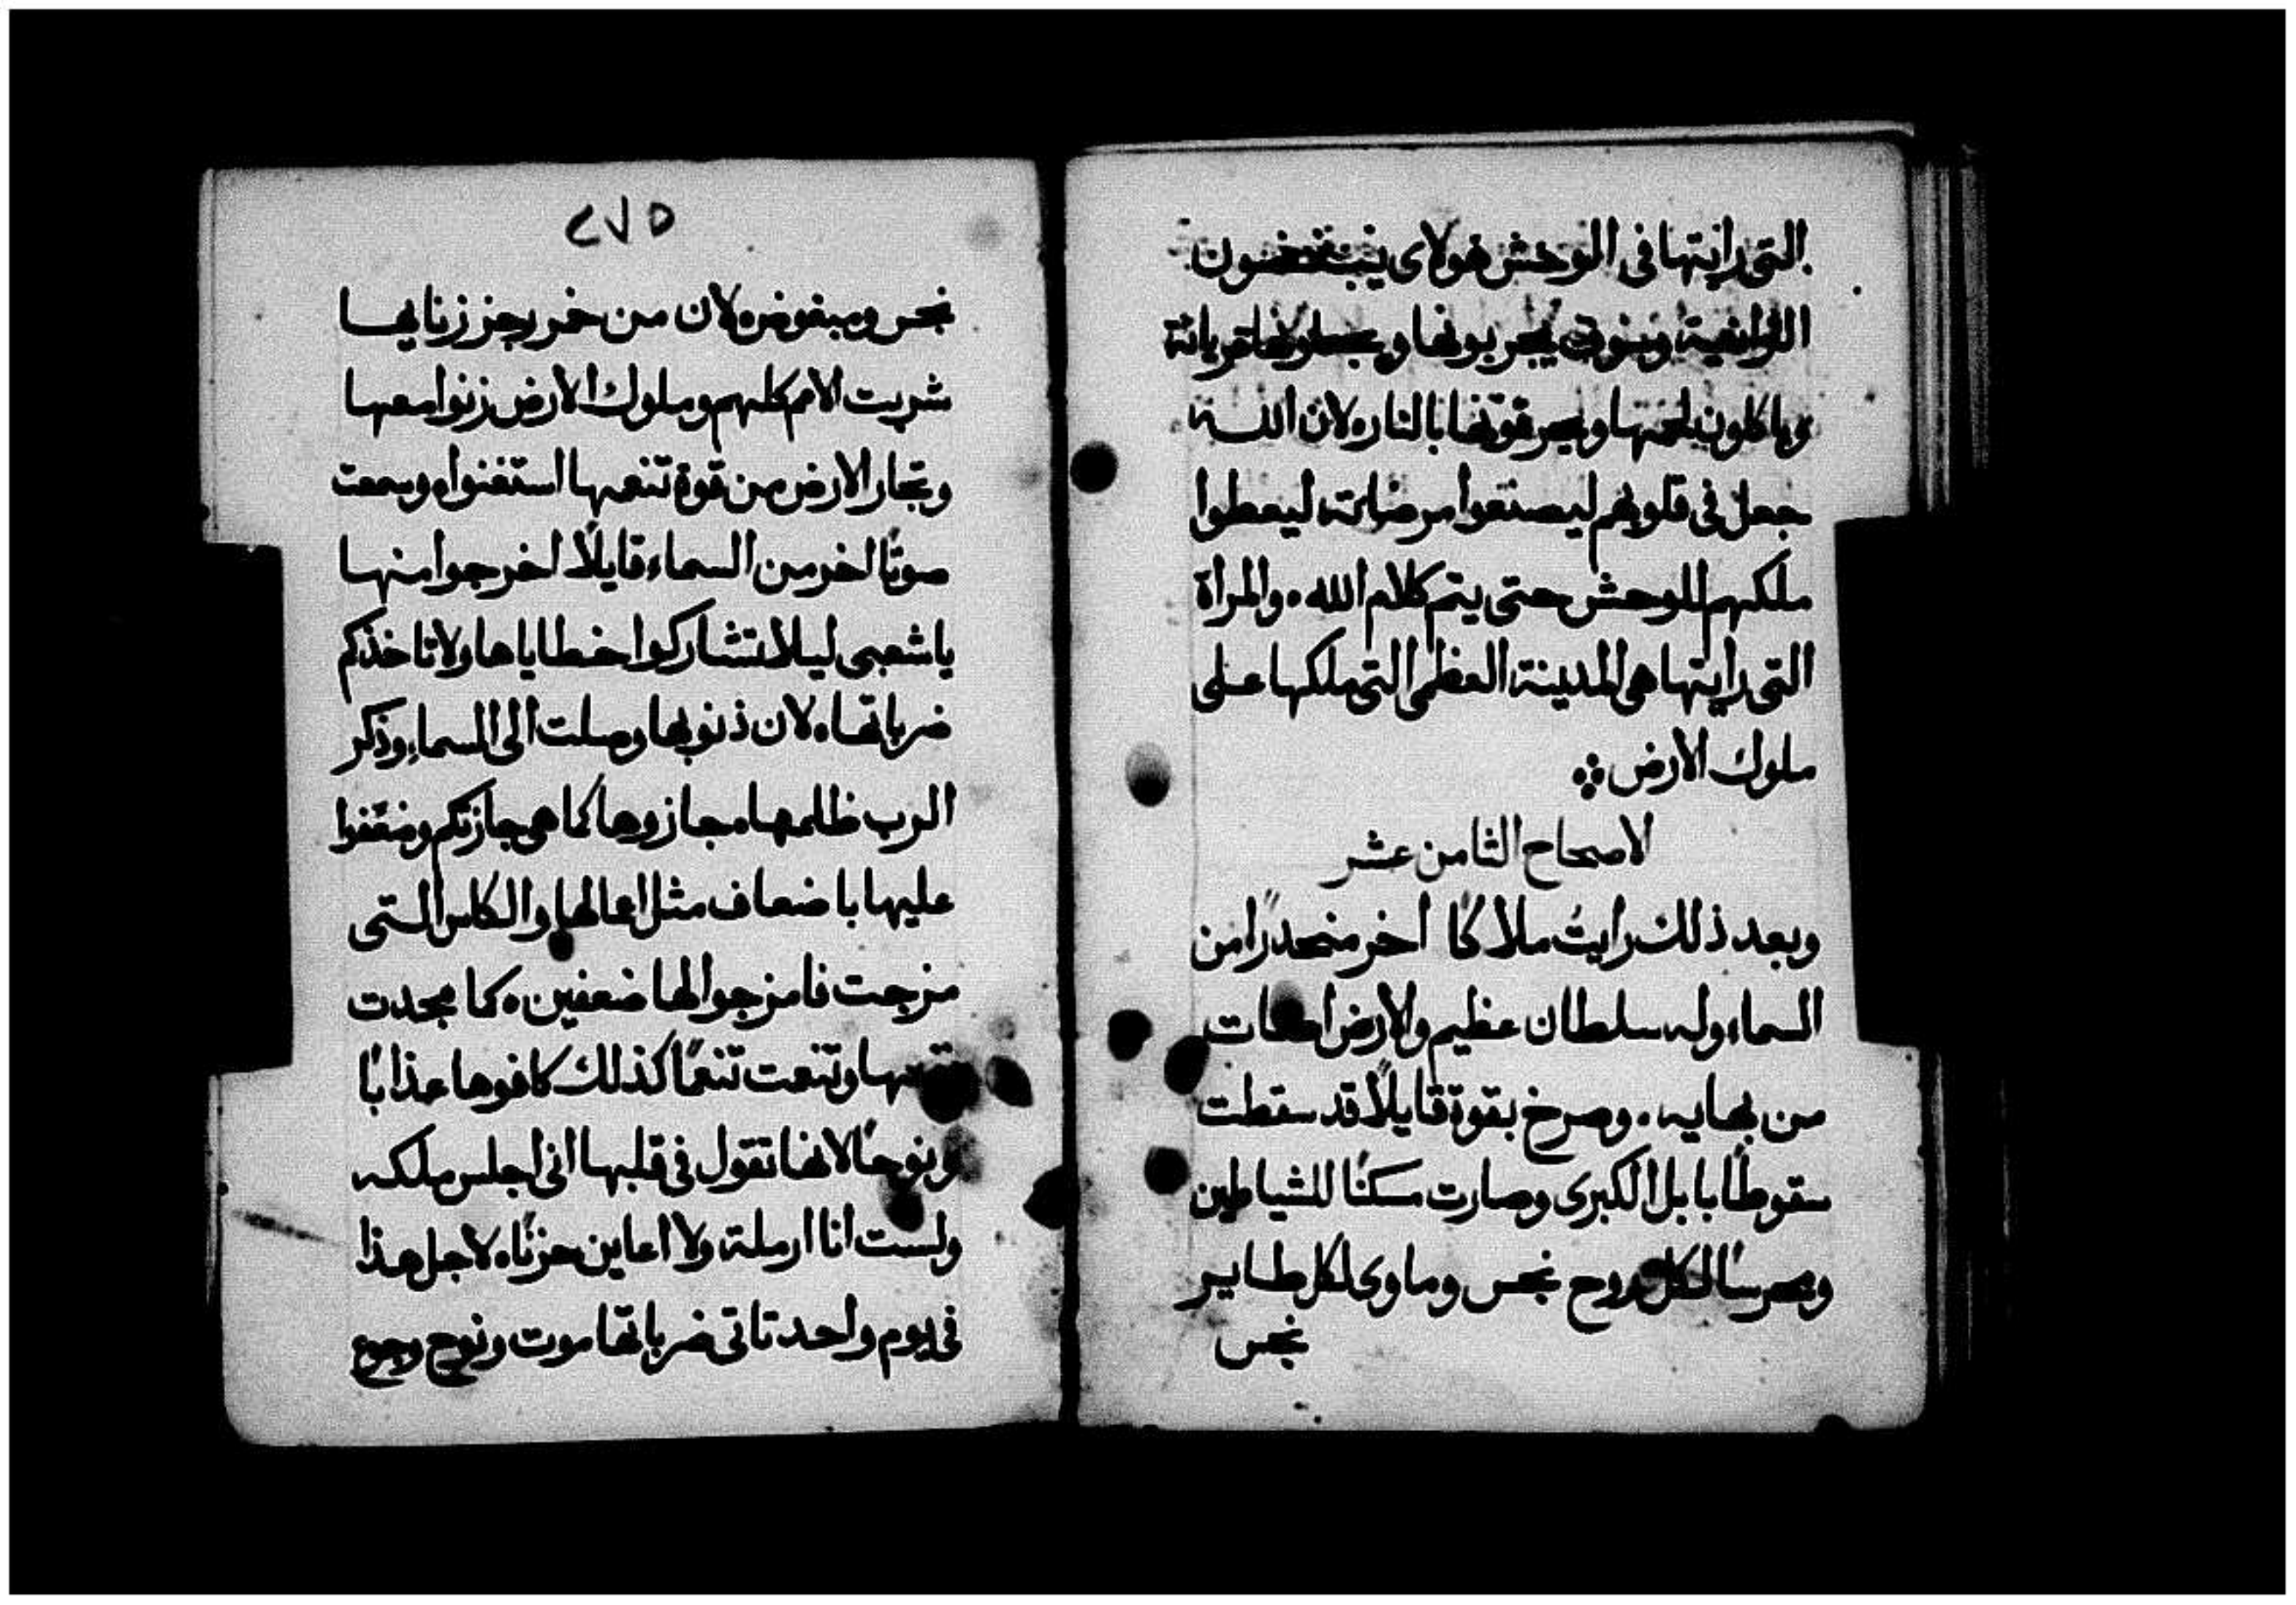 التى رايتها فى الوحش هولاى يبغضون
الزانية وسوف يخربونها ويجعلونها عريانة
وياكلون لحمها ويحرقونها بالنار ه لان الله
جعل فى قلوبهم ليصنعوا مرضاته ليعطوا
ملكهم للوحش حتى يتم كلام الله ه والمراة
التى رايتها هى المدينة العظمى التى ملكها على
ملوك الارض
الاصحاح الثامن عشر
وبعد ذلك رايتُ ملاكًا اخر منحدرًا من
السماء وله سلطان عظيم والارض اضات
من بهايه . وصرخ بقوة قايلًا قد سقطت
سقوطًا بابل الكبرى وصارت مسكنًا للشياطين
ومحرسًا لكل روح نجس وماوى لكل طاير
نجس
٢٧٥
نجس ومبغوض ه لان من خمر رجز زناها
شربت الامم كلهم وملوك الارض زنوا معها
وتجار الارض من قوة تنعمها استغنوا ه وسمعت
صوتًا اخر من السماء قايلًا اخرجوا منها
ياشعبى ليلا تشاركوا خطاياها ولا تاخذكم
ضرباتها ه لان ذنوبها وصلت الى السماء وذكر
الرب ظلمها ه جازوها كما هى جازتكم وضعّفوا
عليها باضعاف مثل اعمالها والكاس التى
مزجت فامزجوا لها ضعفين ه كما مجدت
وتنعمت تنعمًا كذلك كافوها عذابًا
ونوحًا لانها تقول فى قلبها انى اجلس ملكه
ولست انا ارملة ولا اعاين حزنًا ه لاجل هذا
فى يوم واحد تاتى ضرباتها موت ونوح وجوع